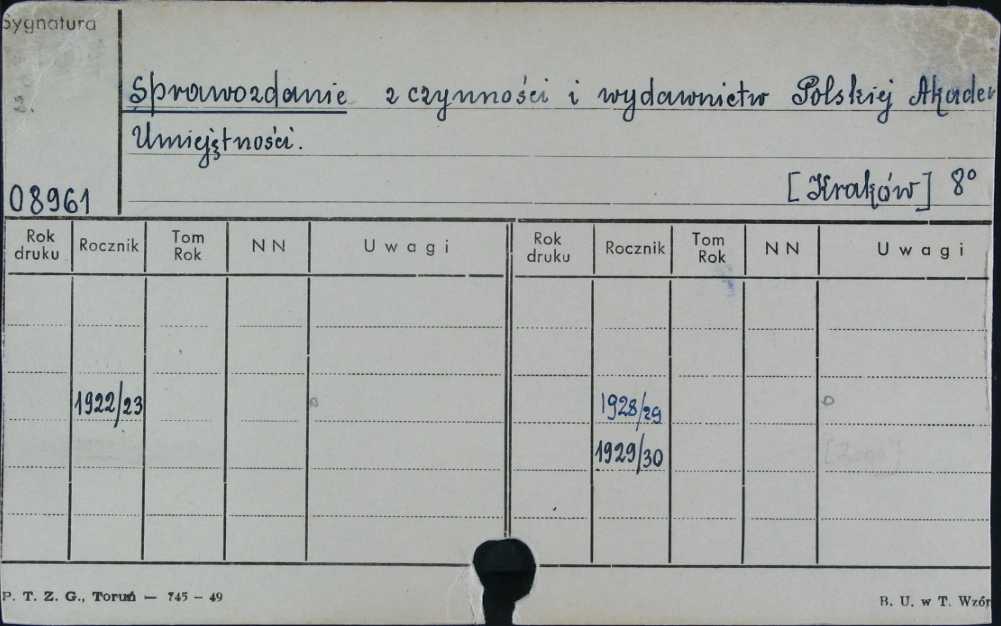 Sygnatura
Sprawozdanie z czynności i wydawnictw Polskiej Akadem
Umiejętności.
[Kraków] 8°
08961
Rok druku Rocznik Tom Rok NN Uwagi Rok druku Rocznik Tom Rok NN Uwagi
1922/23 1928/29
1929/30
P. T. Z. G., Toruń — 745 - 49 B. U. w T. Wzór